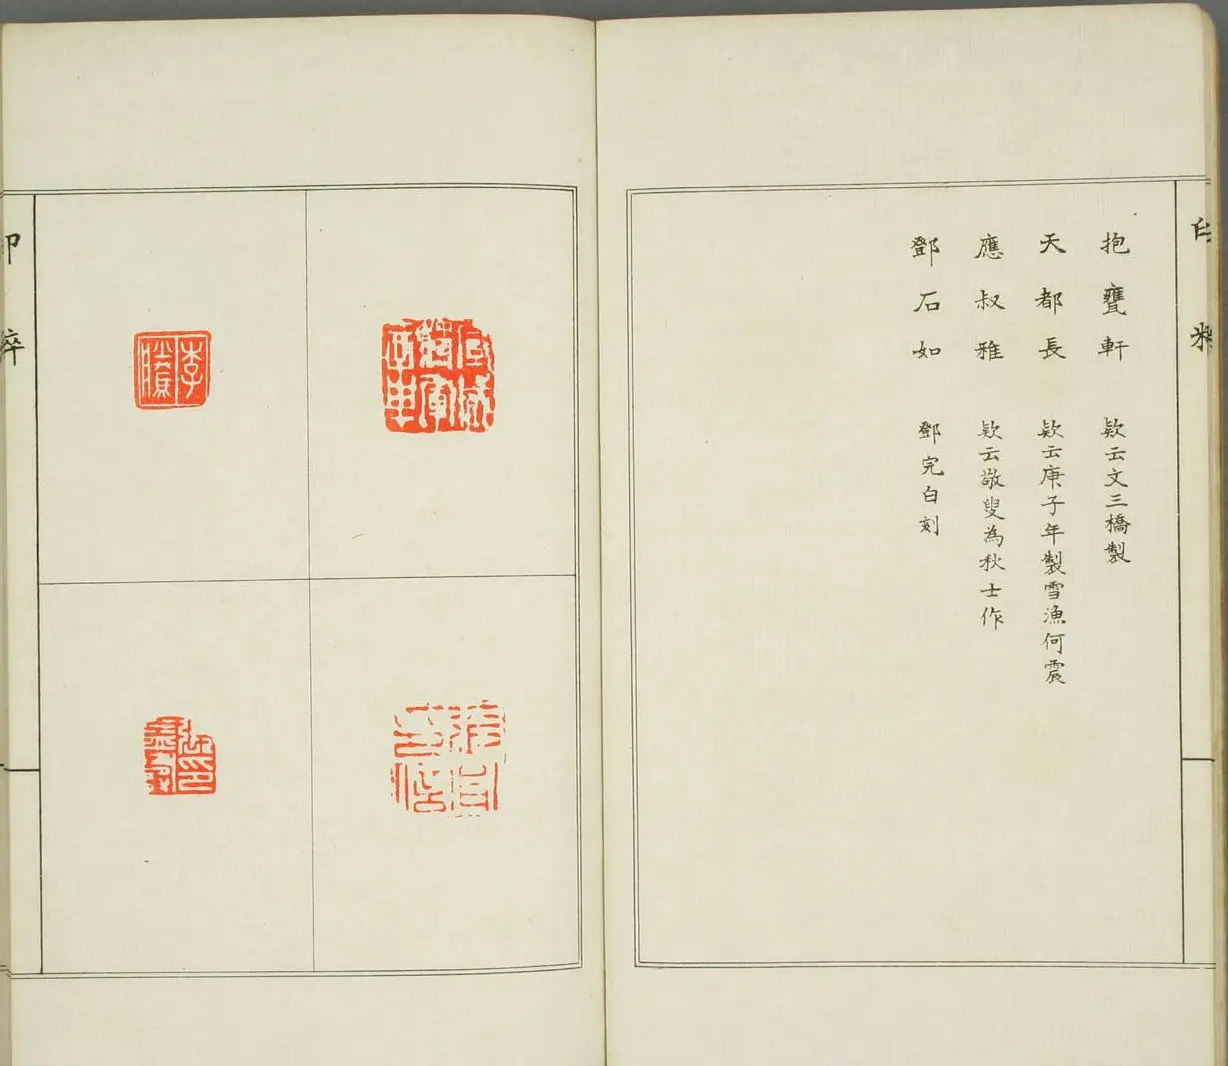 抱甕軒 欵云文三橋製
天都長 欵云庚子年製雪漁何震
應叔雅 欵云敬叟為秋士作
鄧石如 鄧完白刻
印粹
李